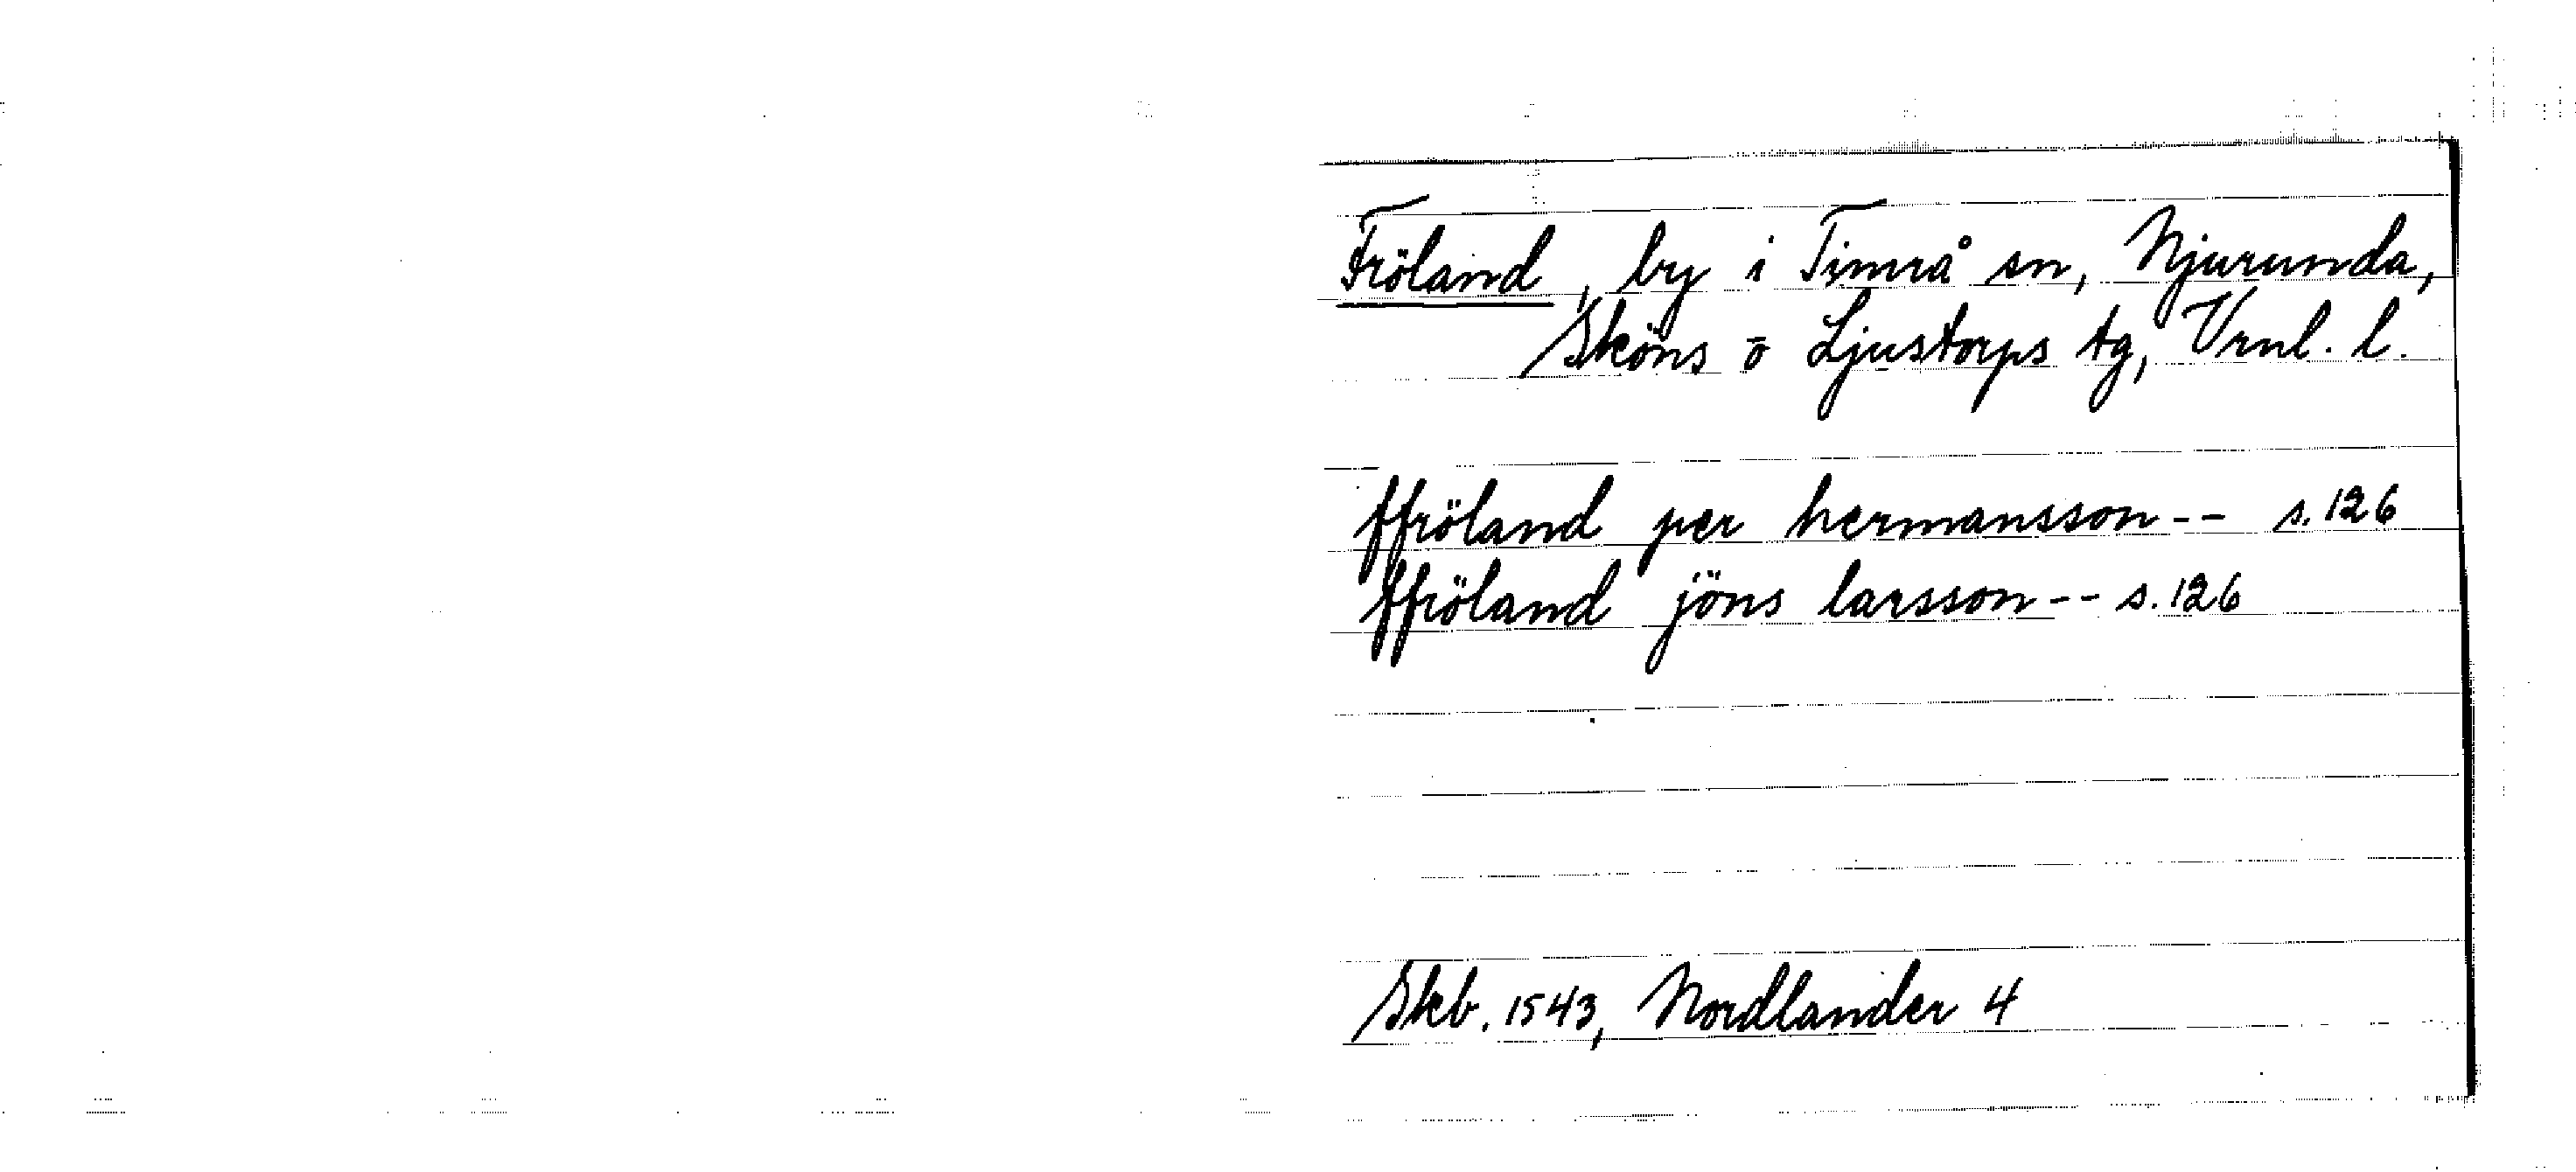 Fröland, by i Timrå sn, Njurunda,
Sköns o Ljustorps tg, Vrnl. l.
ffröland per hermansson -- s. 126
ffröland jöns larsson -- s. 126
Skb. 1543, Nordlander 4